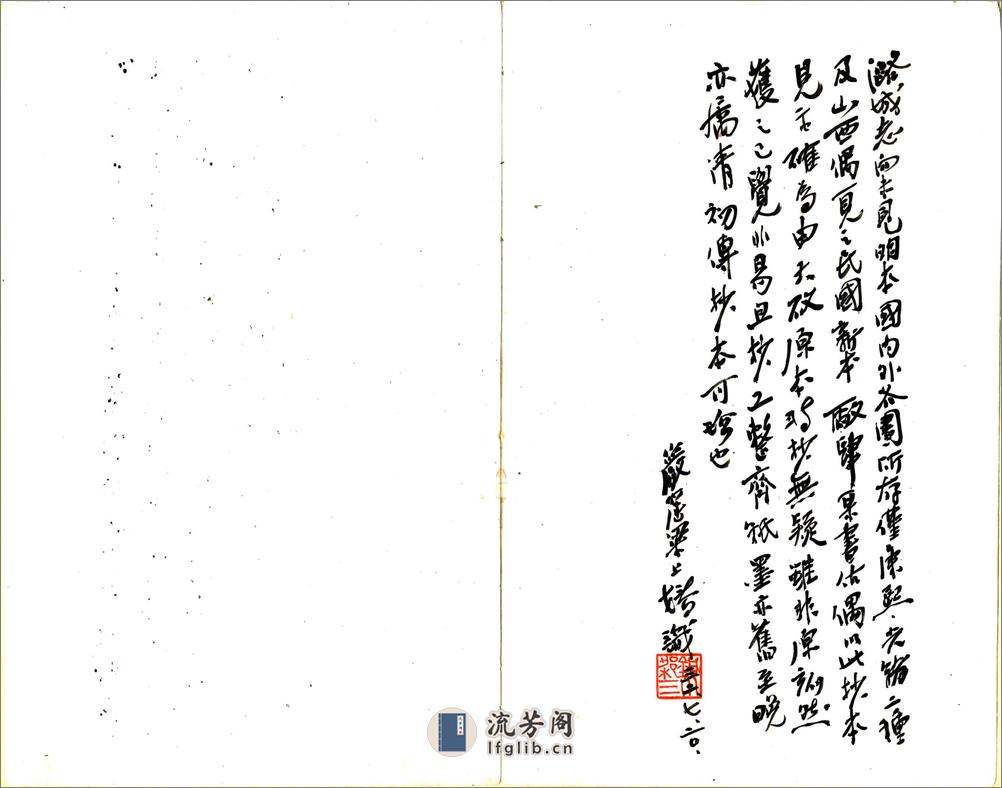 潞城志向未見明本國内外各圖所存僅康熙、光緒二種
及山西偶見之民國新本 廠肆某書估偶以此抄本
見示確為由天啟原本時抄無疑雖非原刻然
獲之已覺非易且抄工整齊紙墨亦舊至晚
亦屬清初傳抄本可珍也
識 三六、七、二〇、
流芳阁
lfglib.cn